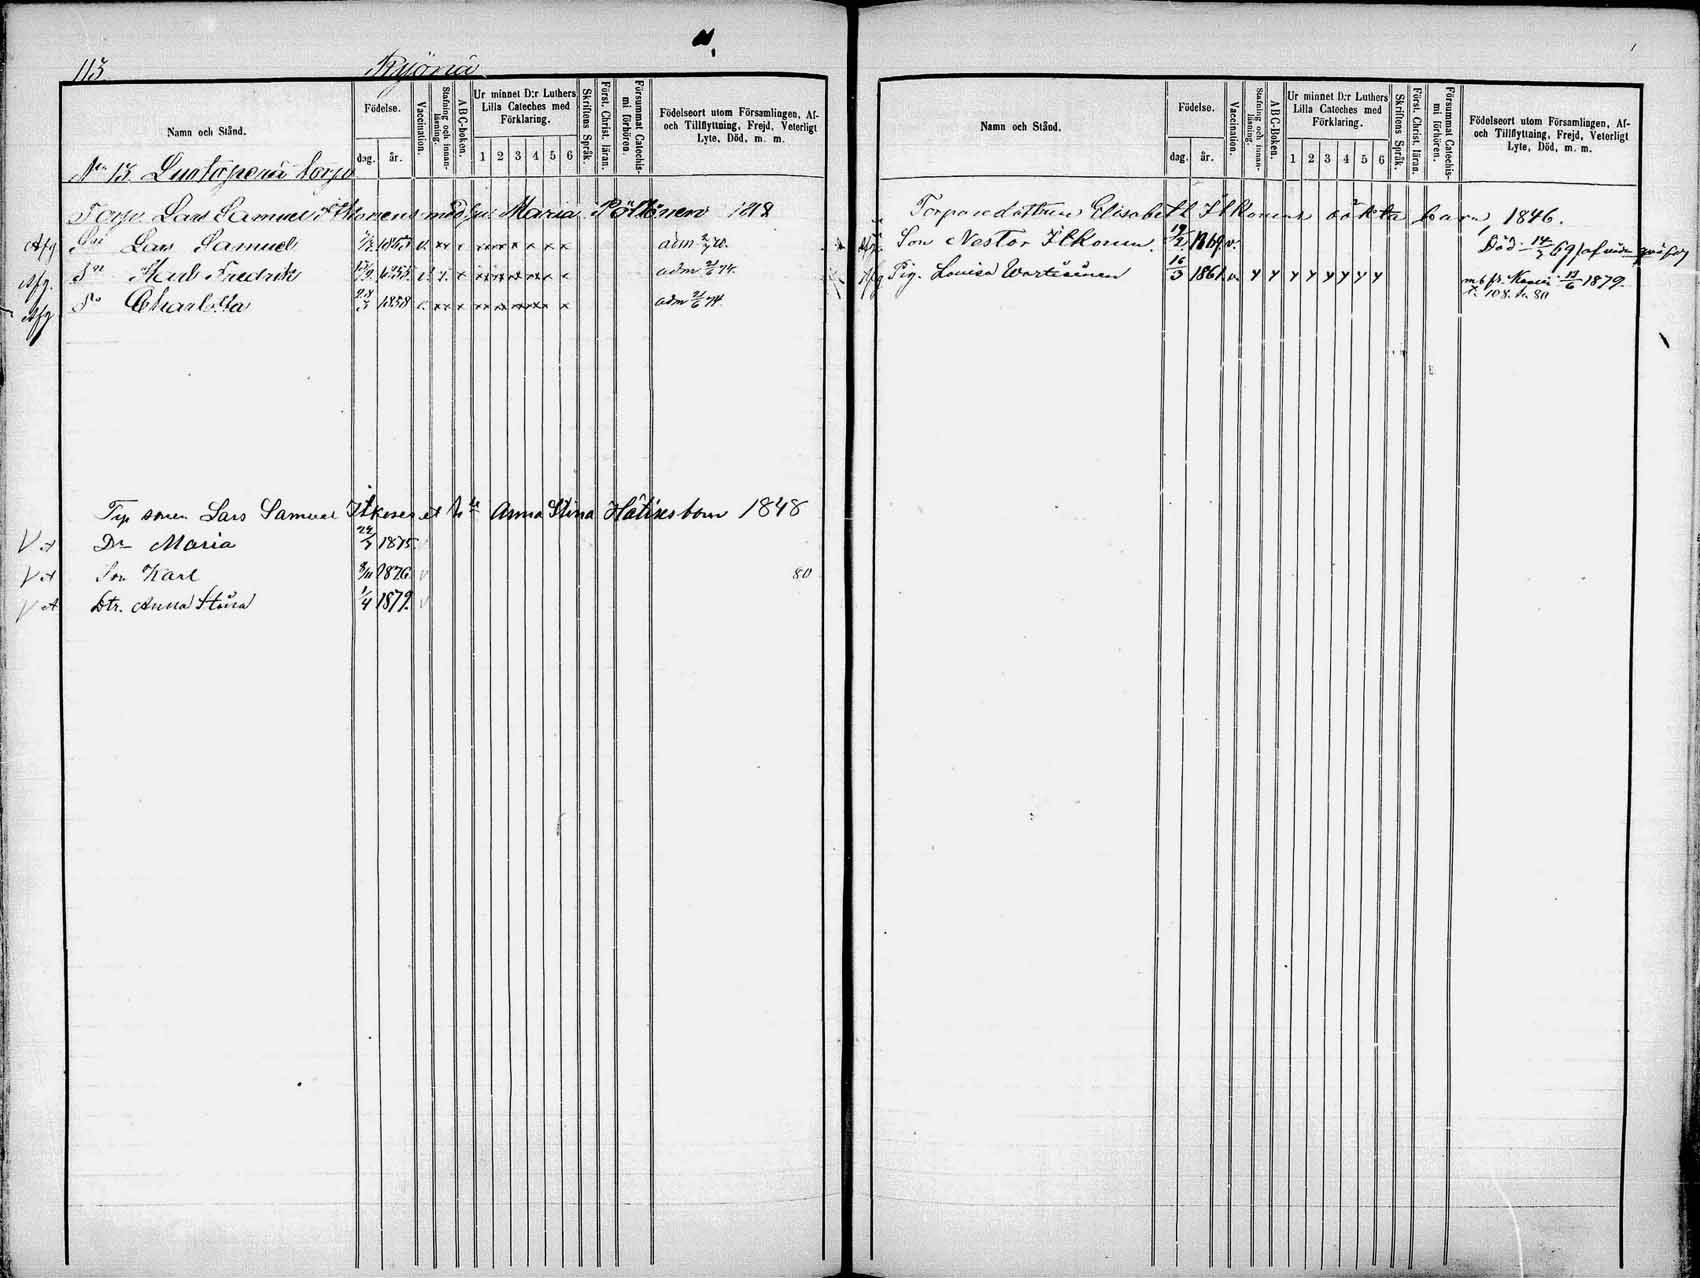 113.
Ryönä
Namn och Stånd.
Födelse.
dag. år.
Vaccination.
Stafning och innanläsning.
ABC-boken.
Ur minnet D:r Luthers Lilla Cateches med Förklaring.
1 2 3 4 5 6
Skriftens Språk.
Först. Christ. läran.
Försummat Catechismi förhören.
Födelseort utom Församlingen, Af- och Tillflyttning, Frejd, Veterligt Lyte, Död, m. m.
No 13. torp
Torp. Lars Samuel Ilkonens med hu. Maria Pöllönen
Afg Lars Samuel v. x x x x x x x x x adm
Afg. Fredrik 1855 v. x x x x x x x x adm 2/6 74.
Afg Charl:tta 28/3 1858 v. x x x x x x x x x adm 2/6 74
Trp sonen Lars Samuel Ilkonen Anna Stina barn 1848
V A Dr Maria 22/3 1875. v
V A Son Karl 3/11 1876 v 80
V A Dtr. Anna Stina 1/4 1879. v
Namn och Stånd.
Födelse.
dag. år.
Vaccination.
Stafning och innanläsning.
ABC-Boken.
Ur minnet D:r Luthers Lilla Cateches med Förklaring.
1 2 3 4 5 6
Skriftens Språk.
Först. Christ. läran.
Försummat Catechismi förhören.
Födelseort utom Församlingen, Af- och Tillflyttning, Frejd, Veterligt Lyte, Död, m. m.
Torparedottren Elisabeth Ilkonens oäkta barn, 1846.
Son Nestor Ilkonen 19/2 1869. v. Död 14/3 69
Afg Pig. Lovisa Wartiainen 16/3 1861. v. y y y y y y y y 13/6 1879.
108. 80